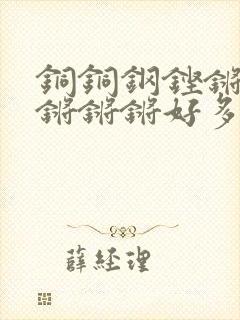 銅銅鋼鏗鏘
鏘鏘鏘好多
薛經理